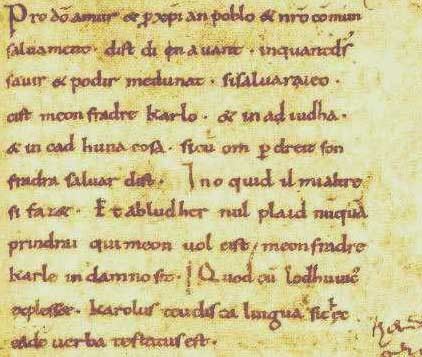 Pro dō amur & p xp̄ian poblo & nrō cōmun
saluament . dist di en auant . inquantdſ
sauir & podir medunat . sisaluaraieo .
cist meon fradre karlo . & in ad iudha .
& in cad huna cosa . sicū om p dreit son
fradra saluar dist . Ino quid il mialtre
si faz& . Et abludher nul plaid nūquā
prindrai qui meon uol cist / meon fradre
karle in damno sit . Quod cū lodhuuic
explesset . karolus teudisca lingua sic
eade uerba testatus est .